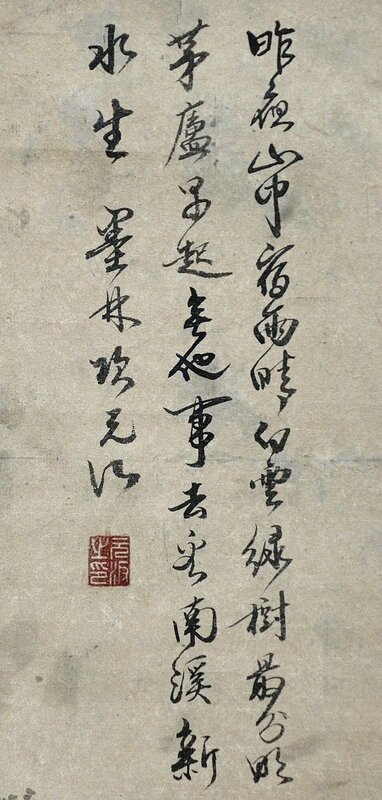 昨夜山中宿雨晴白雲綠樹最分明
茅廬早起無他事去看南溪新
水生 墨林項元汴
元汴之印